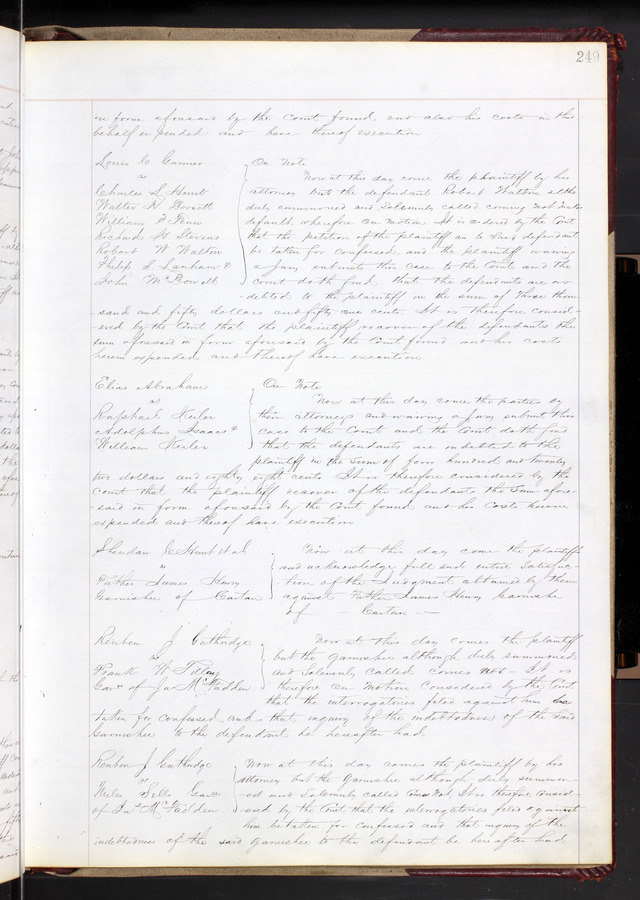 249
in form aforesaid by the Court found and also his costs in this
behalf expended and have thereof execution
Louis C Garnier
vs
Charles L Hunt
Walter
William
Richard H Stevens
Robert W Walton
Philip S Lanham &
John McDowell
On Note
Now at this day come the plaintiff by his
attorney but the defendant Robert Walton altho
duly summoned and Solemnly called coming not makes
default wherefore on motion it is ordered by the Court
that the petition of the plaintiff as to Said defendant
be taken for confessed, and the plaintiff waiving
a Jury submits this case to the Court and the
Court doth find that the defendants are in-
debted to the plaintiff in the sum of Three thou-
sand and fifty dollars and fifty one cents It is therefore consid-
ered by the Court that the plaintiff recover of the defendants the
sum aforesaid in form aforesaid by the Court found and his costs
herein expended and thereof have execution
Elias Abrahams
vs
Raphael Keiler
Adolphus Isaacs &
William Keiler
On Note
Now at this day come the parties by
their attorneys and waiving a Jury submit this
case to the Court and the Court doth find
that the defendants are indebted to the
plaintiff in the sum of four hundred and twenty
two dollars and eighty eight cents It is therefore considered by the
Court that the plaintiff recover of the defendants the Sum afore-
said in form aforesaid by the Court found and his Costs herein
expended and thereof have execution
C Hunt et al
vs
Father James Henry
Garnishee of Cartan
Now at this day come the plaintiffs
and acknowledge full and entire Satisfac-
tion of the Judgment obtained by them
against Father James Henry Garnishee
of Cartan
Reuben J Guthridge
vs
Frank W
Garn of Jas McFadden
Now at this day comes the plaintiff
but the garnishee although duly summoned
and Solemnly called comes not It is
therefore on motion Considered by the Court
that the interrogatories filed against him be
taken for confessed and that inquiry of the indebtedness of the Said
Garnishee to the defendant be hereafter had
Reuben J Guthridge
vs
Miles Sells Garn
of Jas McFadden
Now at this day comes the plaintiff by his
attorney but the Garnishee although duly summon-
ed and Solemnly called comes not, It is therefore consid-
ered by the Court that the interrogatories filed against
him be taken for confessed and that inquiry of the
indebtedness of the said garnishee to the defendant be hereafter had